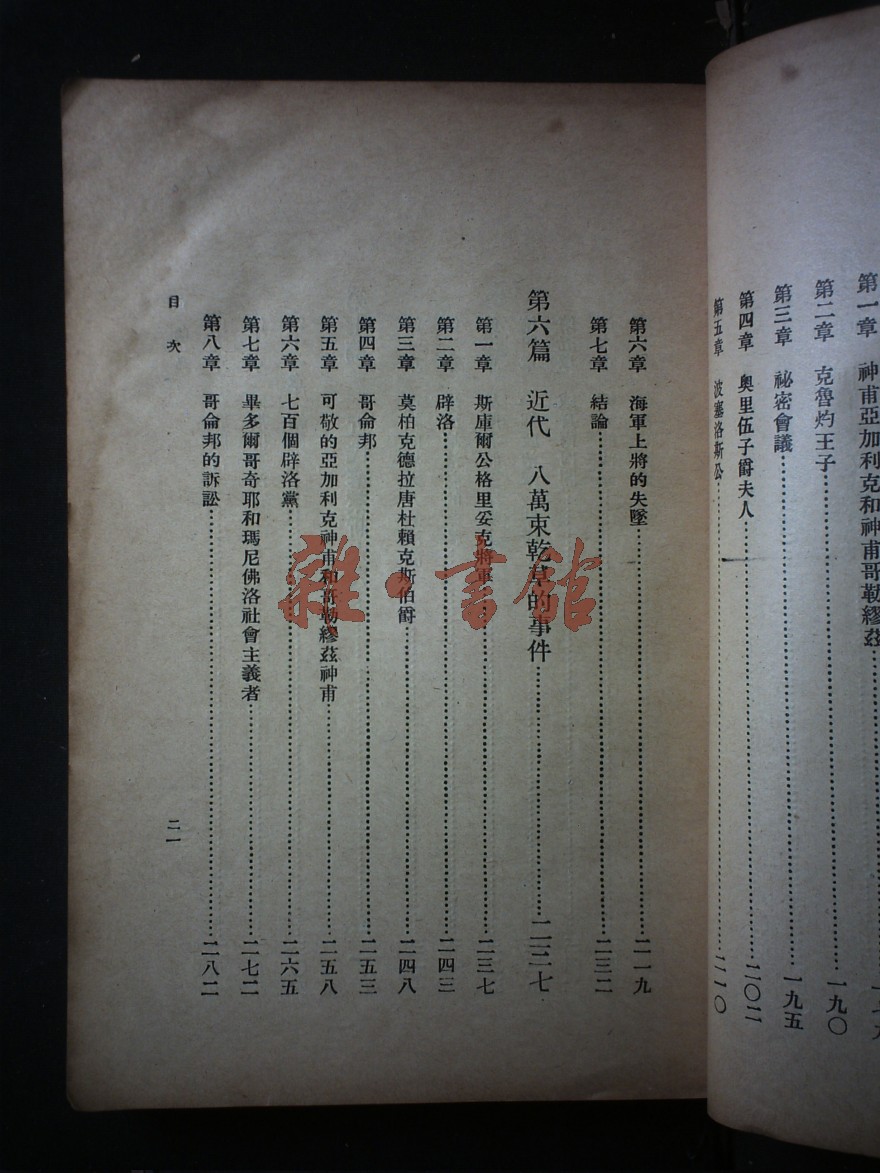 第一章 神甫亞加利克和神甫哥勒繆茲
第二章 克魯灼王子……一九〇
第三章 祕密會議……一九五
第四章 奧里伍子爵夫人……二〇二
第五章 波塞洛斯公……二一〇
第六章 海軍上將的失墜……二一九
第七章 結論……二三二
第六篇 近代 八萬束乾草的事件……二二七
第一章 斯庫爾公格里妥克將軍……二三七
第二章 辟洛……二四三
第三章 莫柏克德拉唐杜賴克斯伯爵……二四八
第四章 哥倫邦……二五三
第五章 可敬的亞加利克神甫和哥勒繆茲神甫……二五八
第六章 七百個辟洛黨……二六五
第七章 畢多爾哥奇耶和瑪尼佛洛社會主義者……二七二
第八章 哥倫邦的訴訟……二八二
目次
二一
雜·書館